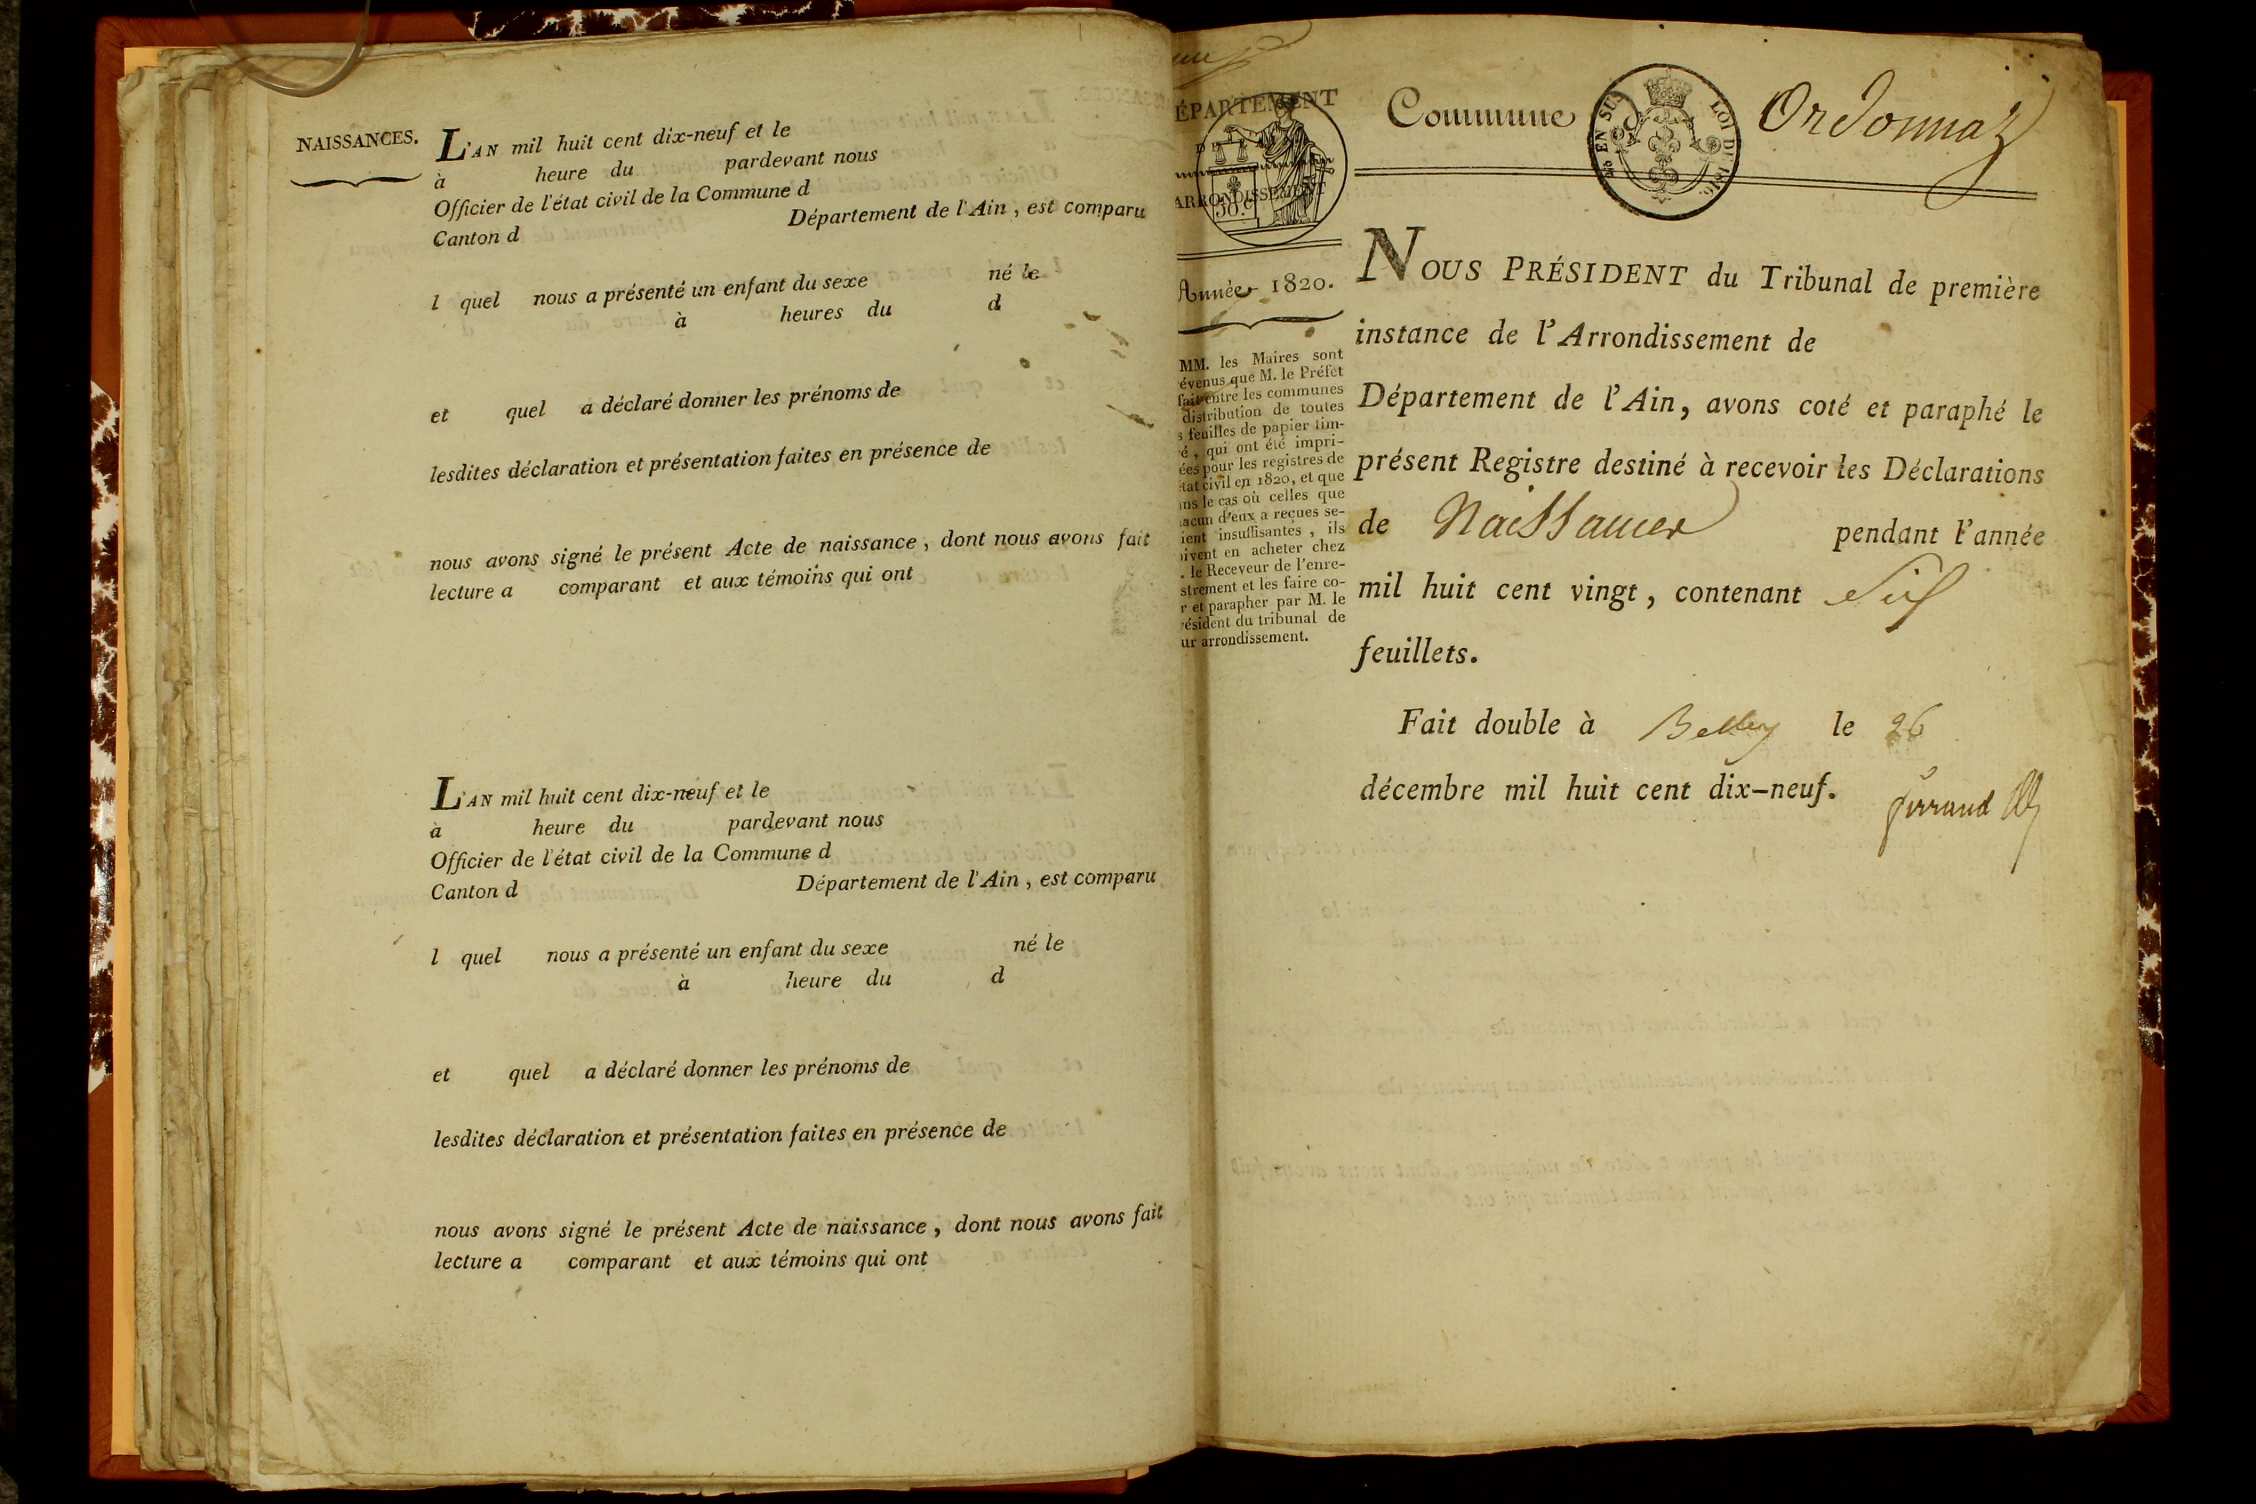 NAISSANCES.
L'AN mil huit cent dix-neuf et le
à heure du pardevant nous
Officier de l'état civil de la Commune d
Canton d Département de l'Ain, est comparu
l quel nous a présenté un enfant du sexe né le
à heures du d
et quel a déclaré donner les prénoms de
lesdites déclaration et présentation faites en présence de
nous avons signé le présent Acte de naissance, dont nous avons fait
lecture a comparant et aux témoins qui ont
L'AN mil huit cent dix-neuf et le
à heure du pardevant nous
Officier de l'état civil de la Commune d
Canton d Département de l'Ain, est comparu
l quel nous a présenté un enfant du sexe né le
à heure du d
et quel a déclaré donner les prénoms de
lesdites déclaration et présentation faites en présence de
nous avons signé le présent Acte de naissance, dont nous avons fait
lecture a comparant et aux témoins qui ont
ÉPARTEMENT
DE
ARRONDISSEMENT
50.c
Année 1820.
MM. les Maires sont
évenus que M. le Préfet
fait entre les communes
distribution de toutes
s feuilles de papier tim-
é, qui ont été impri-
ées pour les registres de
état civil en 1820, et que
ns le cas où celles que
acun d'eux a reçues se-
ient insuffisantes, ils
ivent en acheter chez
. le Receveur de l'enre-
strement et les faire co-
r et parapher par M. le
résident du tribunal de
ur arrondissement.
Commune Ordonnaz
EN SUS LOI DE 1816.
NOUS PRÉSIDENT du Tribunal de première
instance de l'Arrondissement de
Département de l'Ain, avons coté et paraphé le
présent Registre destiné à recevoir les Déclarations
de Naissances pendant l'année
mil huit cent vingt, contenant Six
feuillets.
Fait double à Belley le 26
décembre mil huit cent dix-neuf.